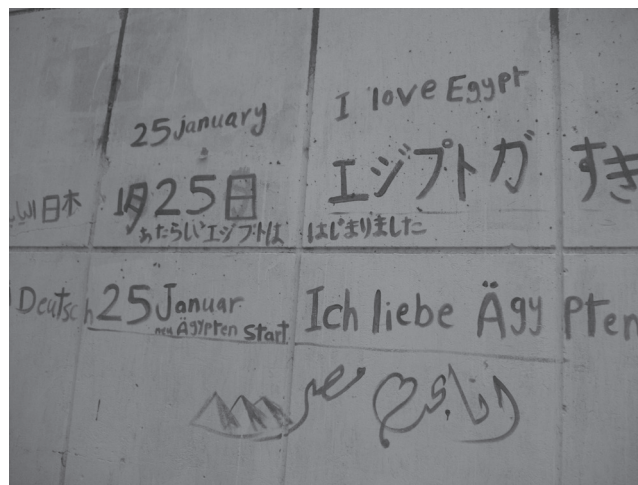 25 january
I love Egypt
日本
1月25日
エジプトガ すき
あたらしいエジプトは はじまりました
Deutsch
25 Januar
neu Ägypten start
Ich liebe Ägypten